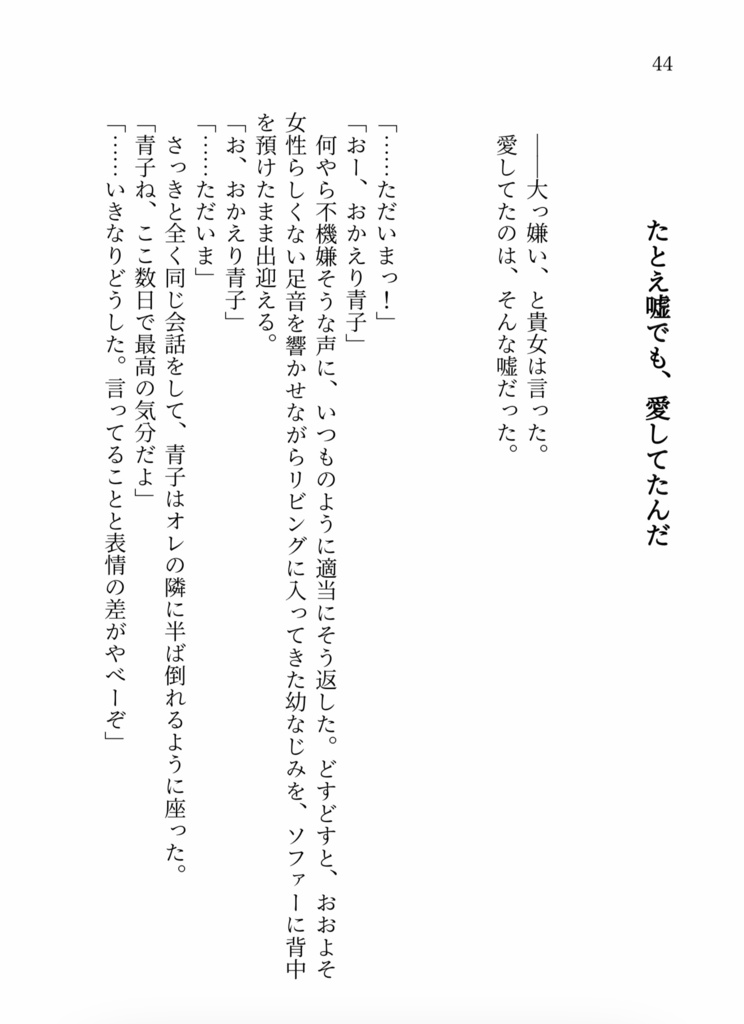 44
たとえ嘘でも、愛してたんだ
――大っ嫌い、と貴女は言った。
愛してたのは、そんな嘘だった。
「……ただいまっ！」
「おー、おかえり青子」
何やら不機嫌そうな声に、いつものように適当にそう返した。どすどすと、おおよそ
女性らしくない足音を響かせながらリビングに入ってきた幼なじみを、ソファーに背中
を預けたまま出迎える。
「お、おかえり青子」
「……ただいま」
さっきと全く同じ会話をして、青子はオレの隣に半ば倒れるように座った。
「青子ね、ここ数日で最高の気分だよ」
「……いきなりどうした。言ってることと表情の差がやべーぞ」